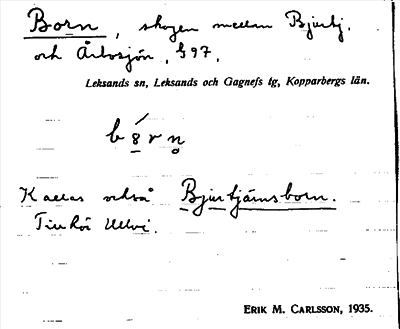 Born, skogen mellan Bjurtj.
och Årbosjön, § 97,
Leksands sn, Leksands och Gagnefs tg, Kopparbergs län.
b 8́ r n̥
Kallas också Bjurtjärnsborn.
Tillhör Ullvi.
ERIK M. CARLSSON, 1935.